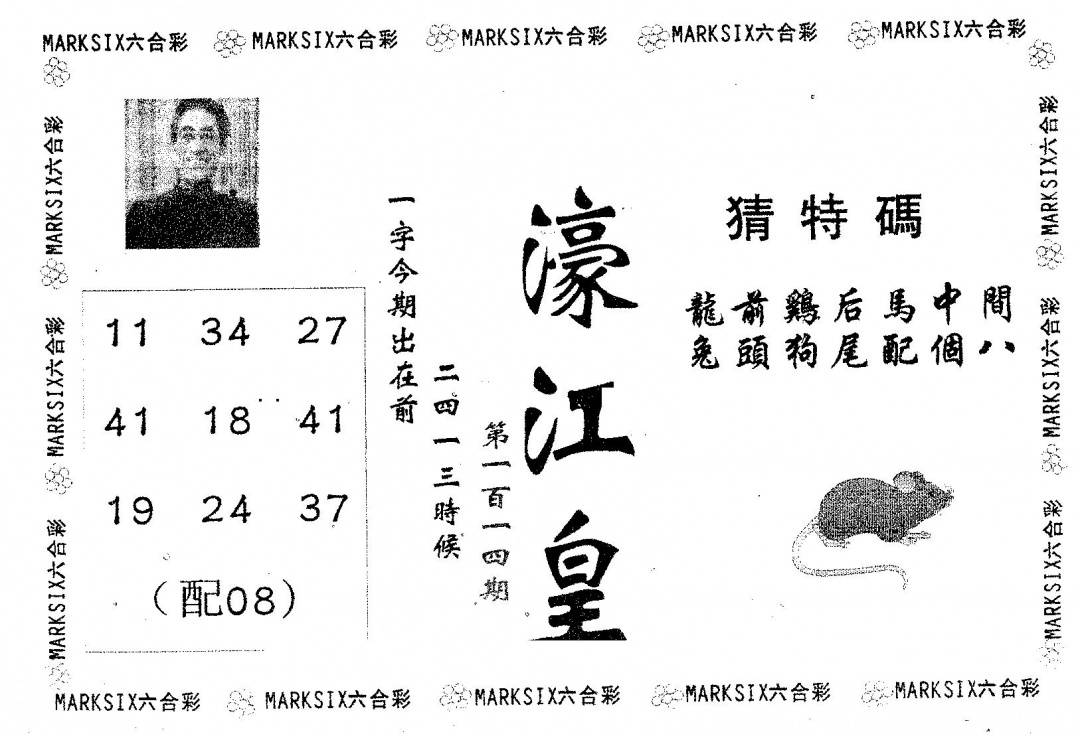 MARKSIX六合彩 MARKSIX六合彩 MARKSIX六合彩 MARKSIX六合彩 MARKSIX六合彩
MARKSIX六合彩
MARKSIX六合彩
MARKSIX六合彩
11 34 27
41 18 41
19 24 37
(配08)
一字今期出在前
二四一三時候
第一百一四期
濠江皇
猜特碼
龍前鷄后馬中間
兔頭狗尾配個八
MARKSIX六合彩
MARKSIX六合彩
MARKSIX六合彩
MARKSIX六合彩 MARKSIX六合彩 MARKSIX六合彩 MARKSIX六合彩 MARKSIX六合彩